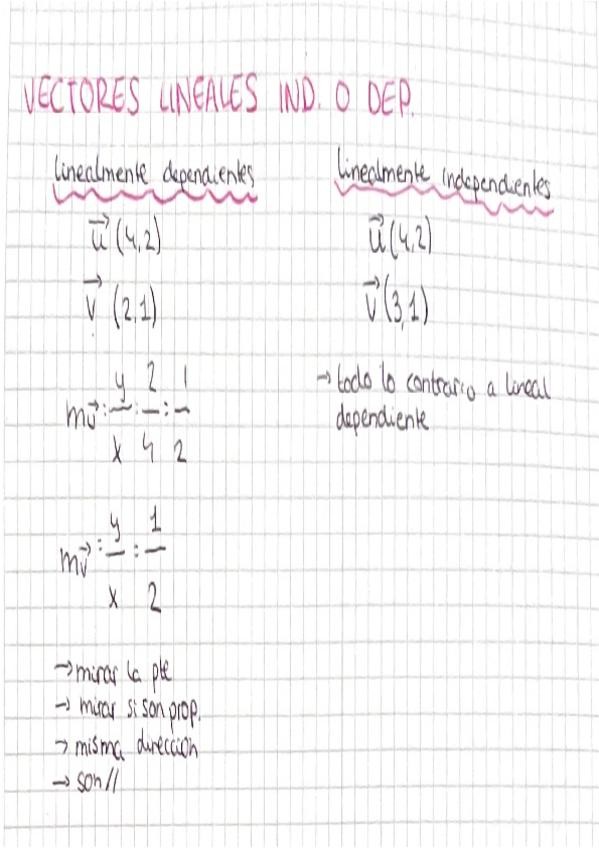 VECTORES LINEALES IND. O DEP.
linealmente dependientes
u⃗ (4,2)
v⃗ (2,1)
mu⃗ : y/x : 2/4 : 1/2
mv⃗ : y/x : 1/2
→ mirar la pte
→ mirar si son prop.
→ misma dirección
→ son //
linealmente independientes
u⃗ (4,2)
v⃗ (3,1)
→ todo lo contrario a lineal
dependiente